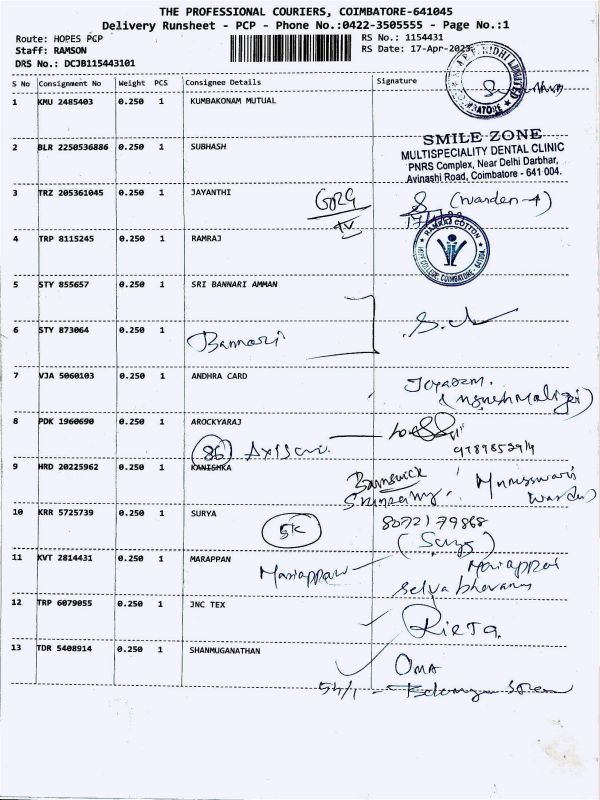 THE PROFESSIONAL COURIERS, COIMBATORE-641045
Delivery Runsheet - PCP - Phone No.:0422-3505555 - Page No.:1
Route: HOPES PCP
RS No.: 1154431
Staff: RAMSON
RS Date: 17-Apr-2023
DRS No.: DCJB115443101
S No Consignment No Weight PCS Consignee Details Signature
1 KMU 2485403 0.250 1 KUMBAKONAM MUTUAL
NIDHI LIMITED
COIMBATORE
2 BLR 2250536886 0.250 1 SUBHASH
SMILE ZONE
MULTISPECIALITY DENTAL CLINIC
PNRS Complex, Near Delhi Darbhar,
Avinashi Road, Coimbatore - 641 004.
3 TRZ 205361045 0.250 1 JAYANTHI
(Warden-4)
4 TRP 8115245 0.250 1 RAMRAJ
RAMRAJ COTTON
HOPE COLLEGE, COIMBATORE - 641004.
5 STY 855657 0.250 1 SRI BANNARI AMMAN
6 STY 873064 0.250 1
Bannari
7 VJA 5060103 0.250 1 ANDHRA CARD
8 PDK 1960690 0.250 1 AROCKYARAJ
86
9 HRD 20225962 0.250 1 KANISHKA
Munesswari
Warden
10 KRR 5725739 0.250 1 SURYA
5K
8072179868
(Surya)
11 KVT 2814431 0.250 1 MARAPPAN
Mariappan
Mariappan
Selva bhavanam
12 TRP 6079055 0.250 1 JNC TEX
Rieta
13 TDR 5408914 0.250 1 SHANMUGANATHAN
OMA